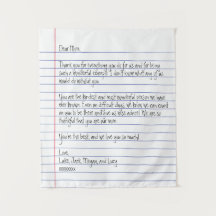 Dear Mum,
Thank you for everything you do for us and for being
such a wonderful support. I don't know what any of us
would do without you.
You are the kindest and most wonderful person we have
ever known. Even on difficult days, we know we can count
on you to be there and give us wise advice. We are so
thankful that you are our mum.
You're the best, and we love you so much!
Love,
Luke, Jack, Megan, and Lucy
xxxxxxxx